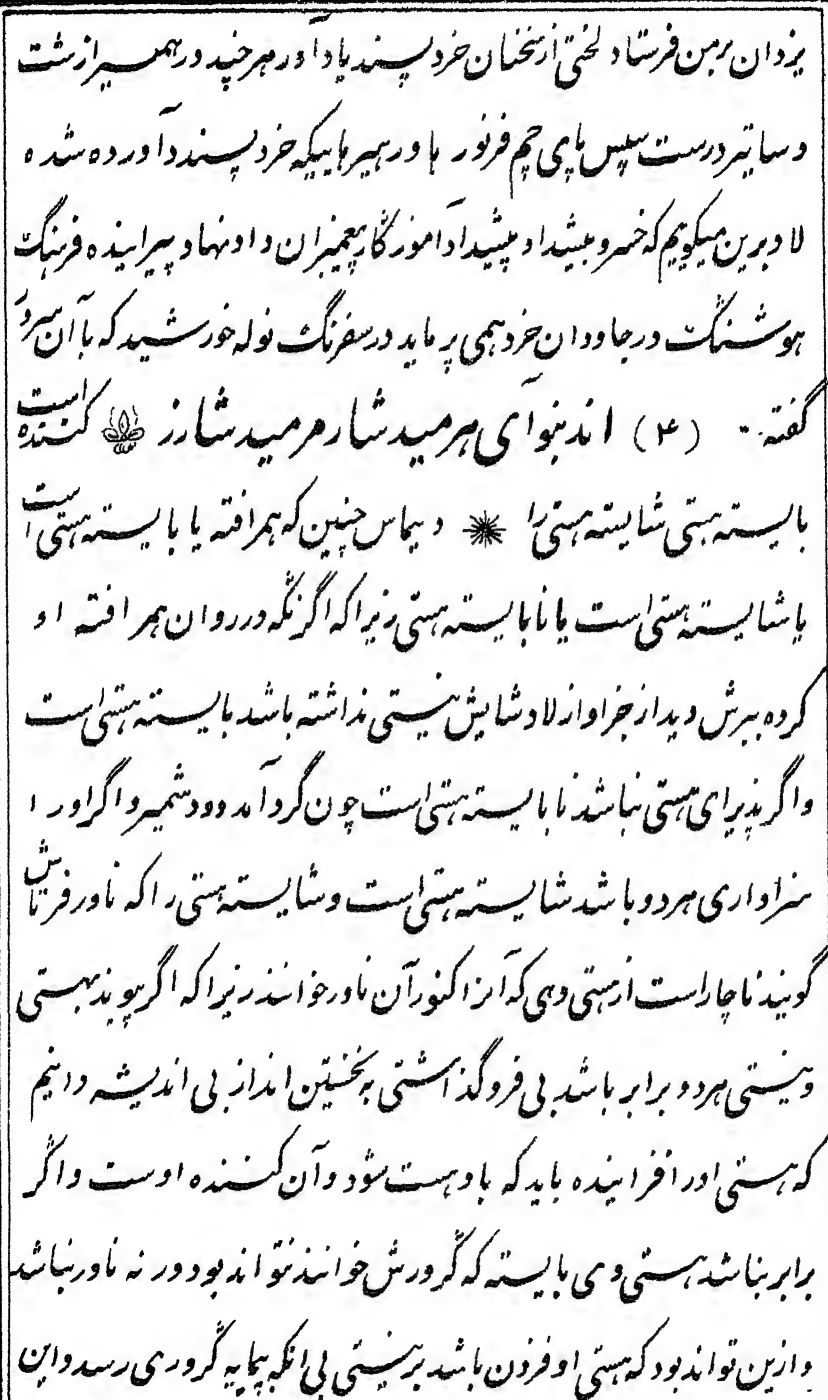 یزدان برمن فرستاد لختی از سخنان خرد پسند یاد آور هر چند در همیراز شت
و ساتیر درست سپس پای چم فرنور ها و رهبرهاییکه خرد پسندد آورده شده
لاد برین میگویم که خسرو بیشداد پیشداد آموزگار پیغمبران داد نهاد و پیراینده فرهنگ
هوشنگ در جاودان خرد همی پر ماید در سفرنگ نوله خورشید که با آن سرور
گفته (۴) اند نبوآی هرمید شار هرمید شارز کننده است
بایسته هستی شایسته هستی را دیماس چنین که همر افته یا بایسته هستی است
یا شایسته هستی است یا نابایسته هستی زیرا که اگر نگه در روان همر افته او
کرده ببرش دید از جز او از لاد شایش نیستی نداشته باشد بایسته هستی است
واگر پذیرای هستی نباشد نابایسته هستی است چون گرد آمد دود شمیر و اگر اورا
سزاواری هر دو باشد شایسته هستی است و شایسته هستی را که ناور فرتاش
گویند ناچار است از هستی دهی که آنرا کنور آن ناور خوانند زیرا که اگر پیوند بهستی
و نیستی هر دو برابر باشد بی فروگذاشتی به نخستین انداز بی اندیشه دانیم
که هستی اور افزاینده باید که باو هست شود و آن کننده اوست و اگر
برابر نباشد هستی وی بایسته که گرورش خوانند نتواند بود ورنه ناور نباشد
و ازین تواند بود که هستی او فزون باشد بر نیستی بی انکه بپایه گروری رسد و این